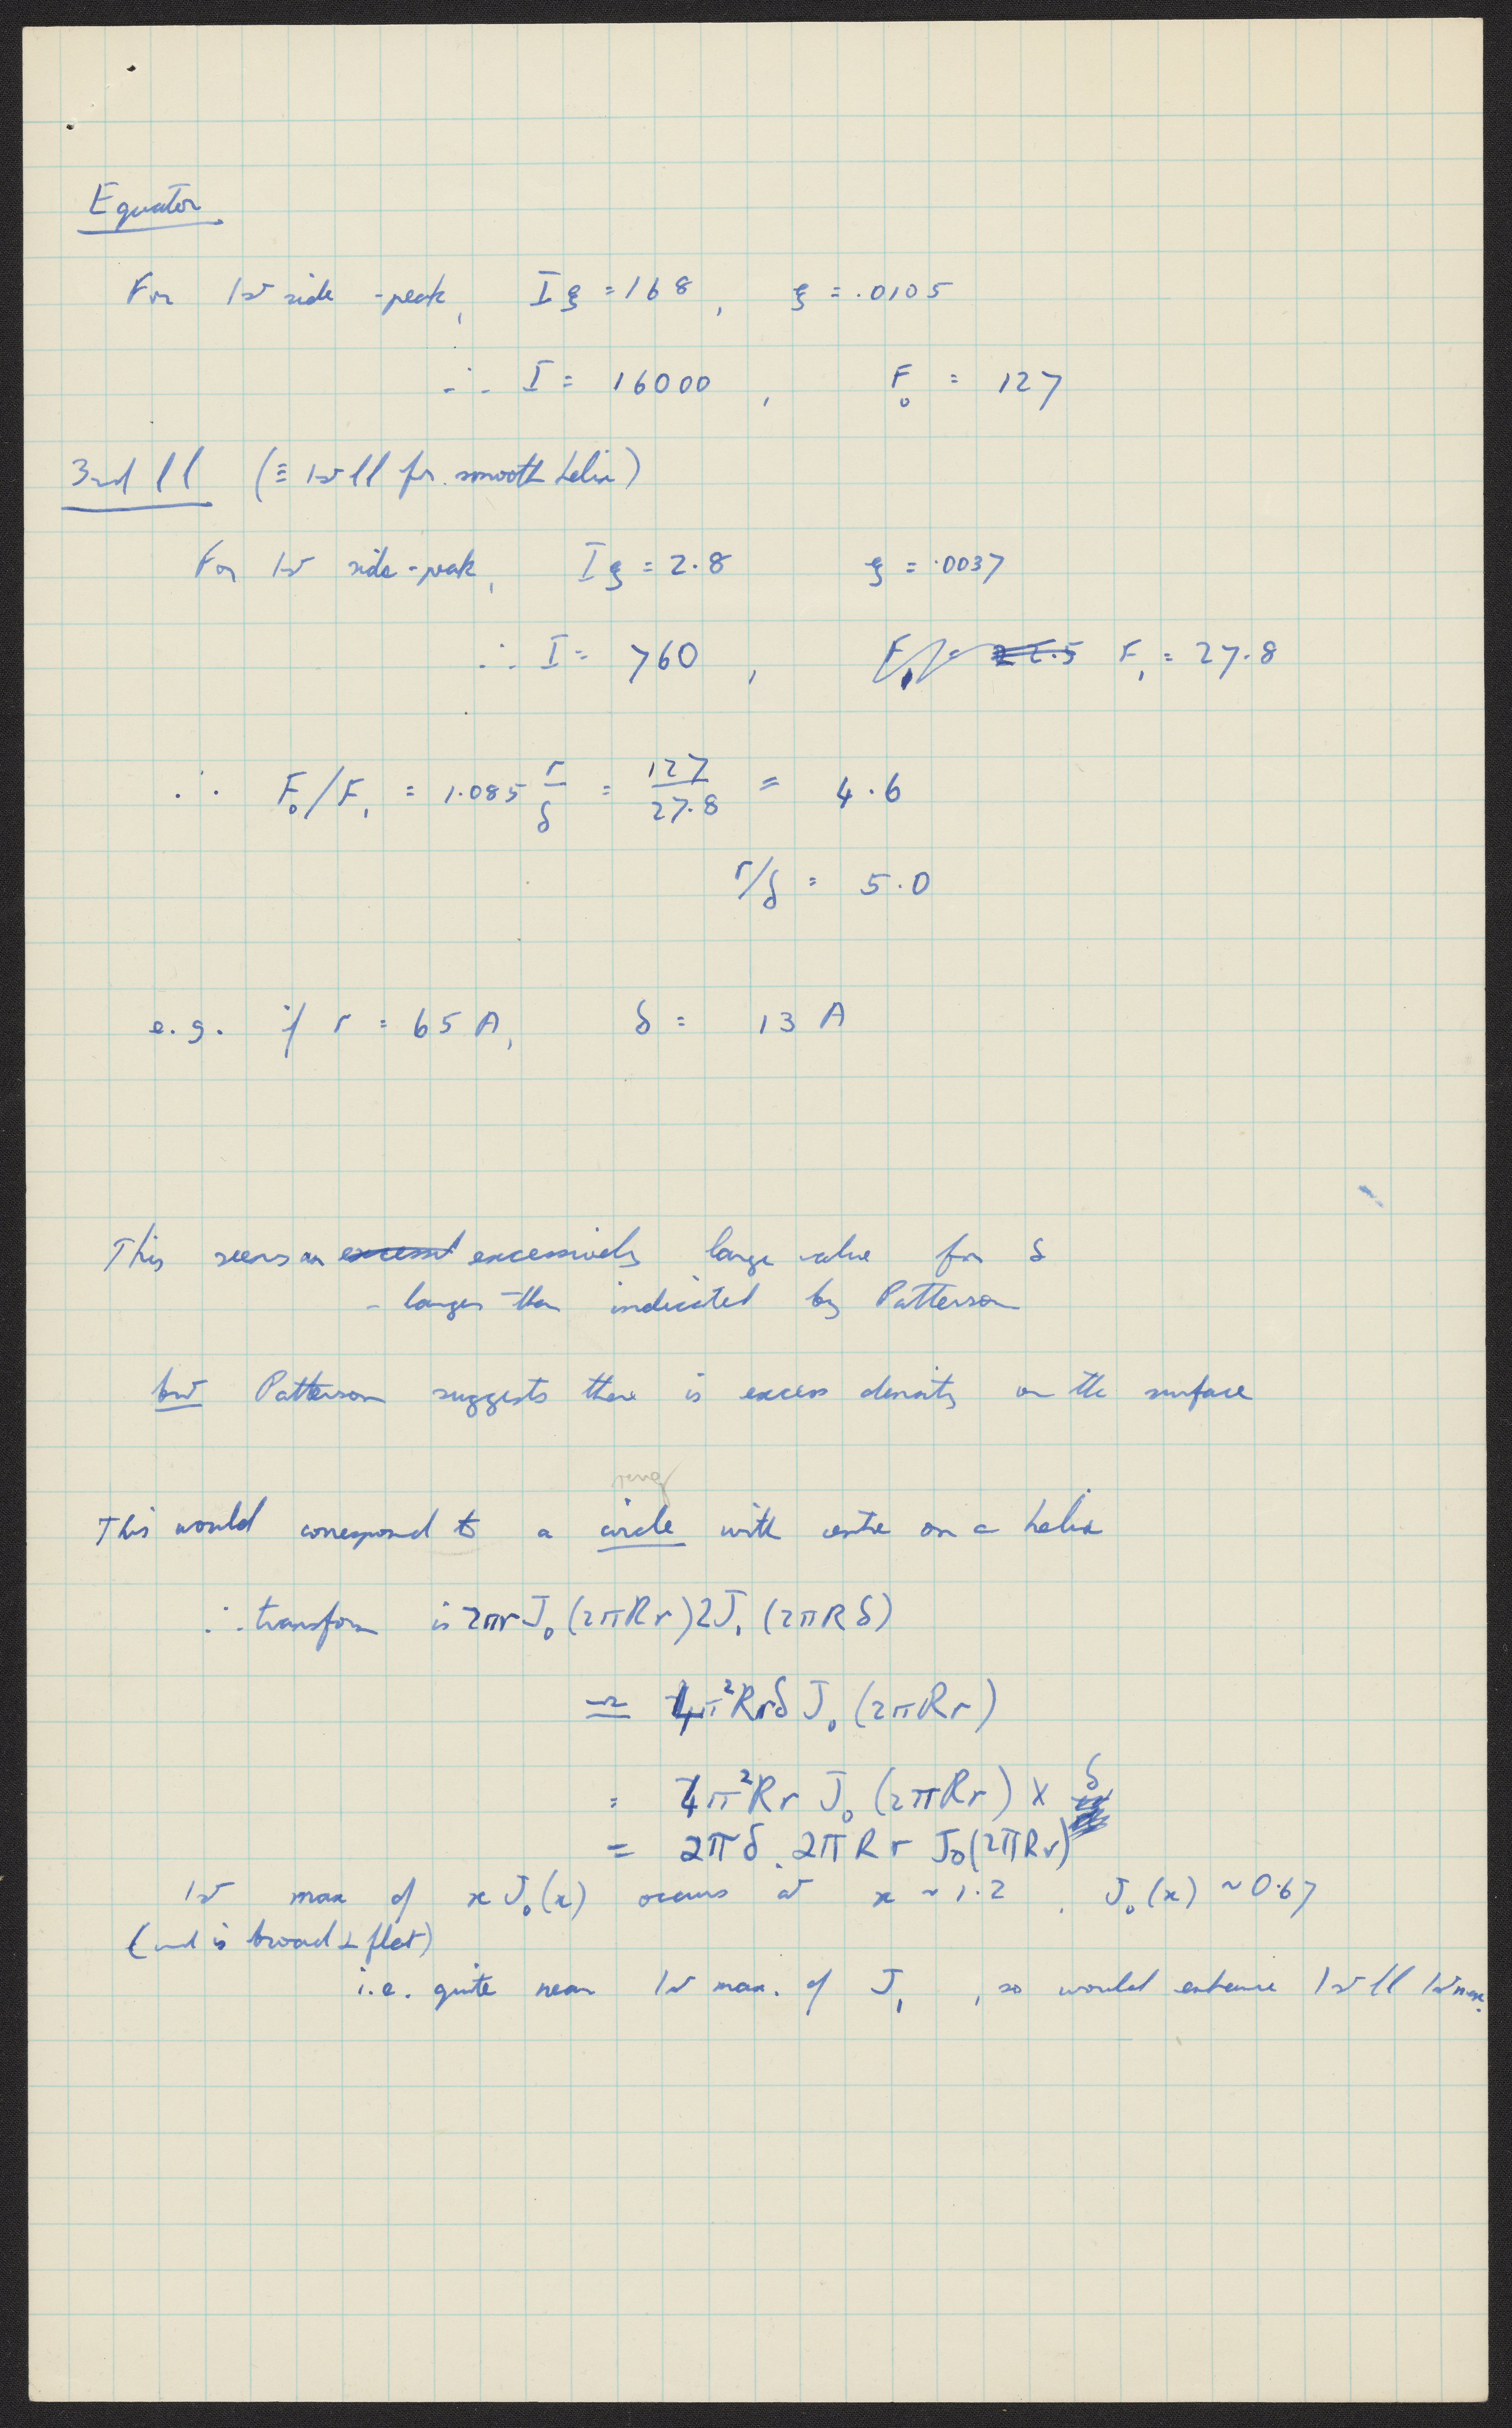 Equator
For 1st side-peak, Iξ = 168, ξ = .0105
∴ I = 16000, F₀ = 127
3rd ll (≡ 1st ll for smooth helix)
For 1st side-peak, Iξ = 2.8 ξ = .0037
∴ I = 760, F₁ = 22.5 F₁ = 27.8
∴ F₀/F₁ = 1.085 r/δ = 127/27.8 = 4.6
r/δ = 5.0
e.g. if r = 65 A, δ = 13 A
This seems an excessivl excessively large value for δ
- larger than indicated by Patterson
but Patterson suggests there is excess density on the surface
ring
This would correspond to a circle with centre on a helix
∴ transform is 2πr J₀(2πRr) 2J₁(2πRδ)
≃ 4π²Rrδ J₀(2πRr)
= 4π²Rr J₀(2πRr) × δ
= 2πδ . 2πRr J₀(2πRr)
1st max of x J₀(x) occurs at x ~ 1.2, J₀(x) ~ 0.67
(and is broad & flat)
i.e. quite near 1st max. of J₁, so would enhance 1st ll 1st max.